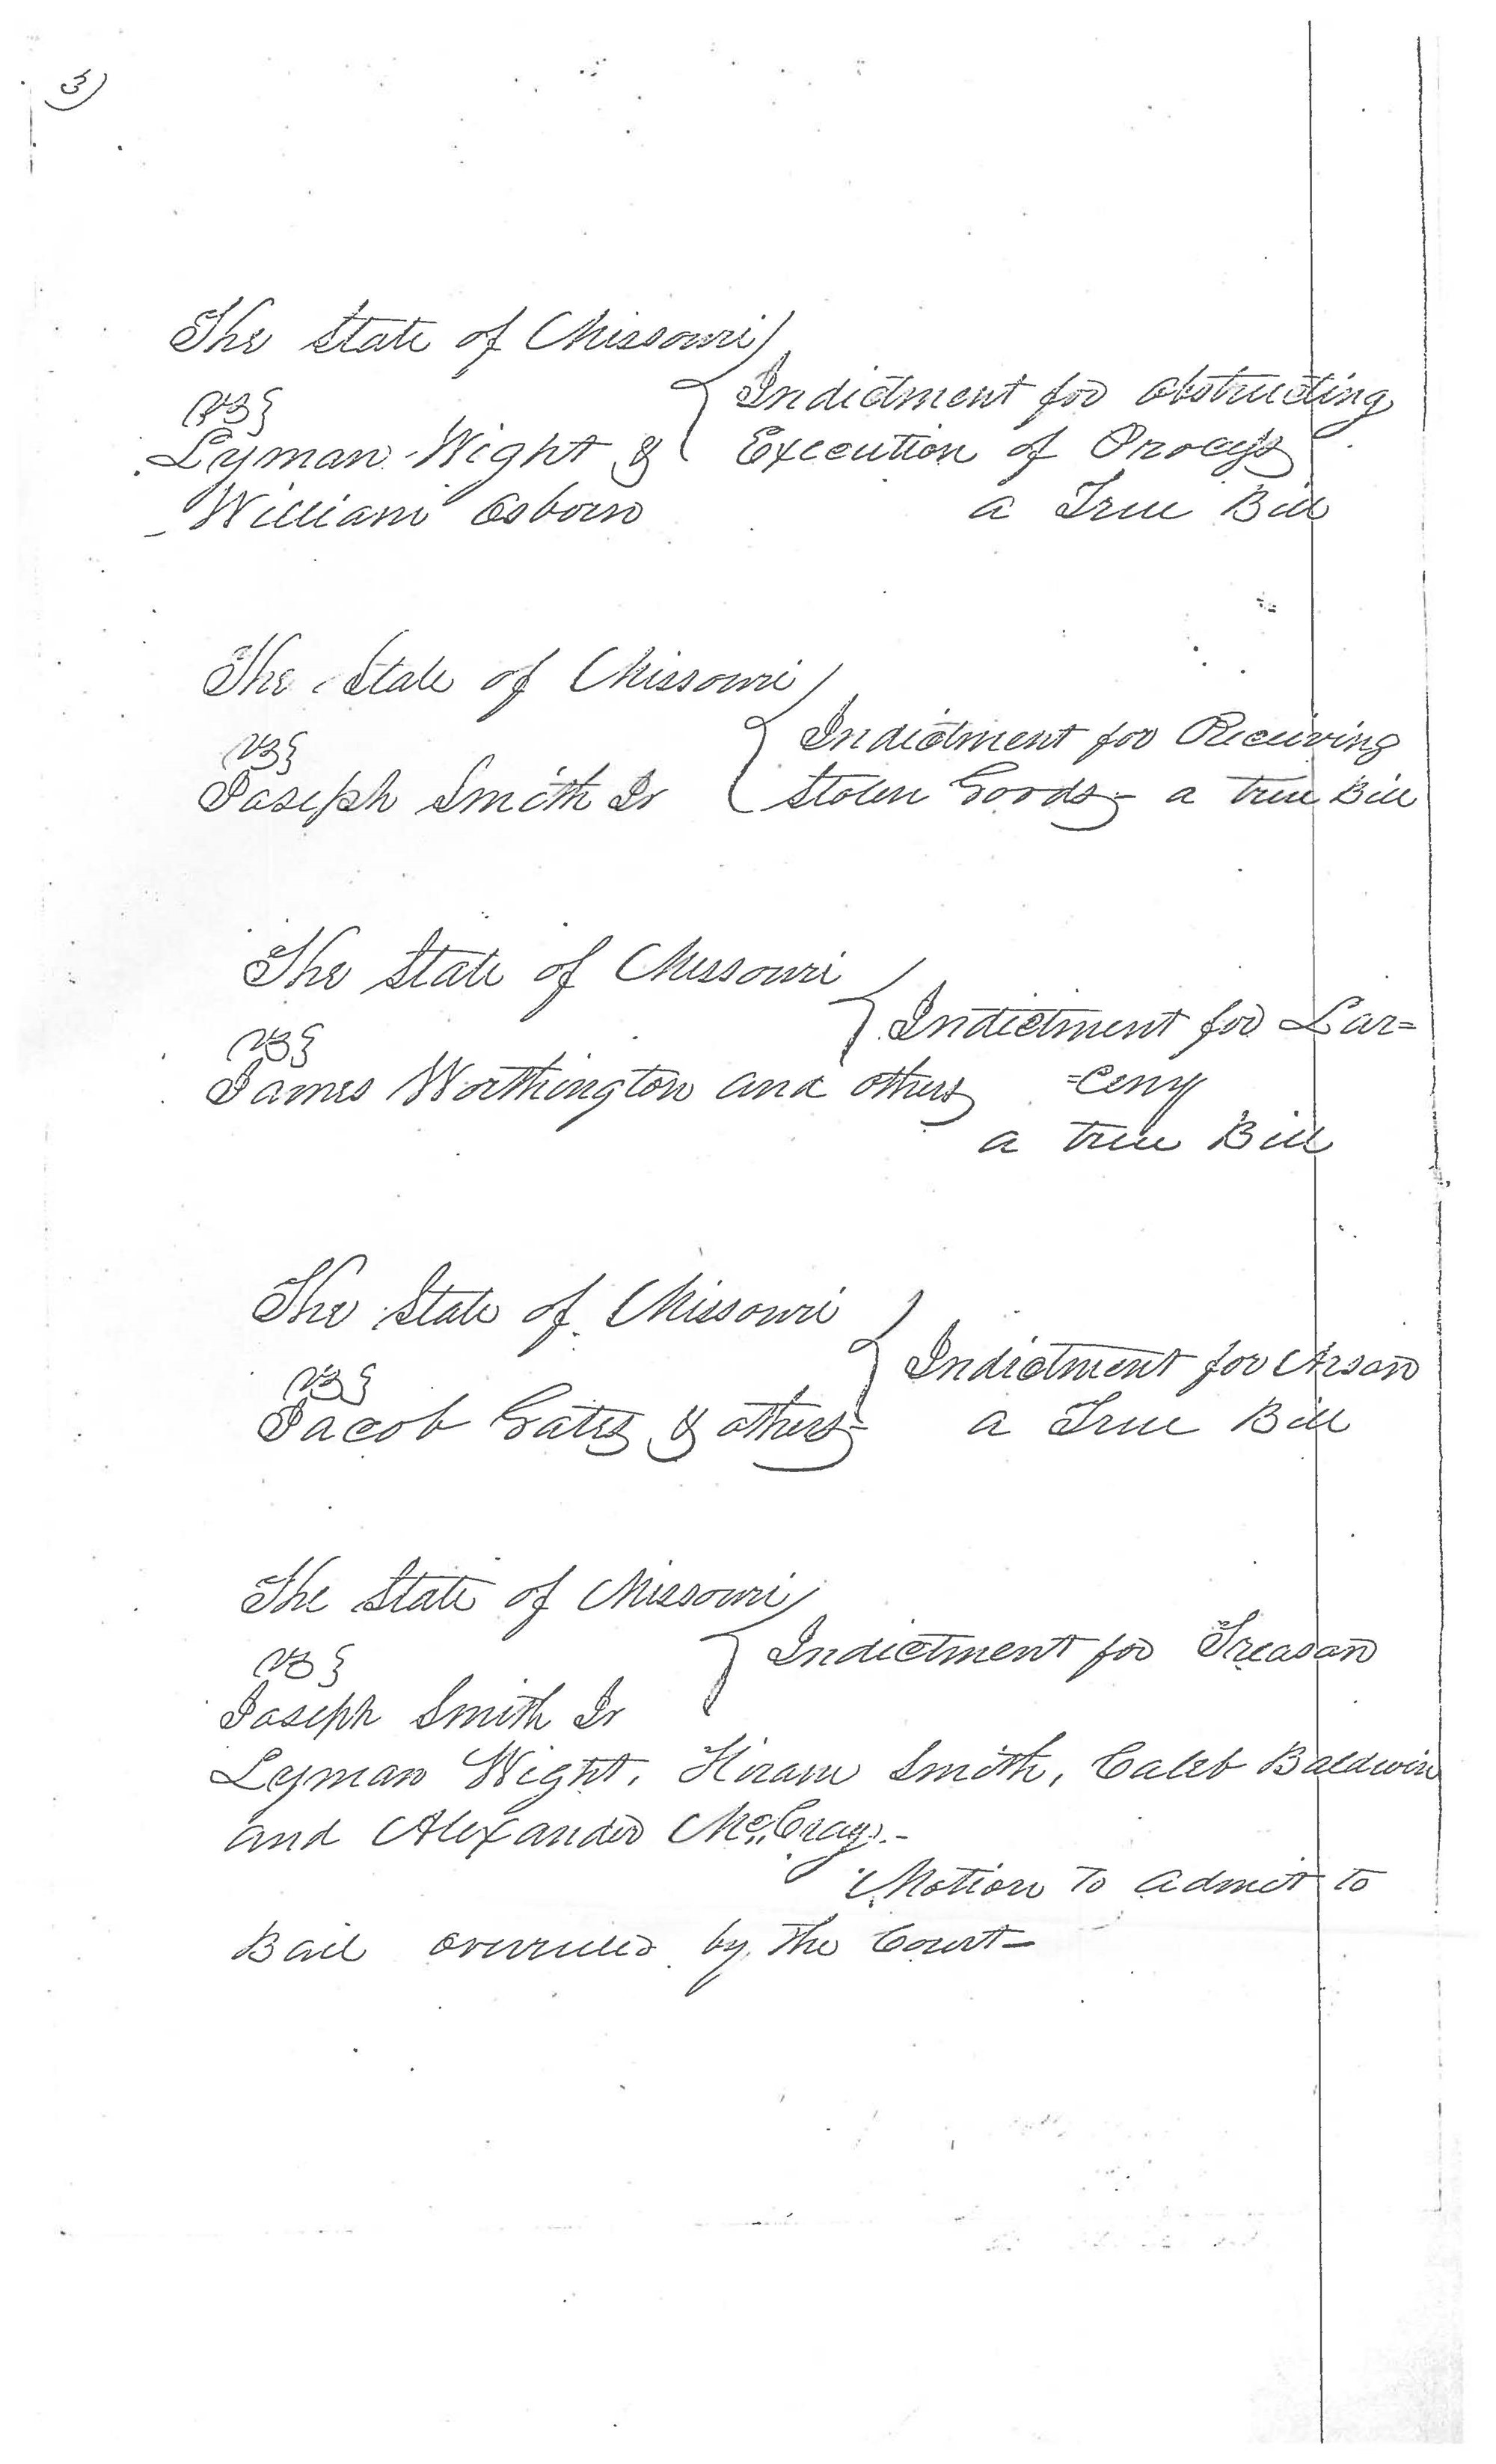 3)
The State of Missouri
vs }
Lyman Wight &
William Osborn
Indictment for obstructing
Execution of Process
a True Bill
The State of Missouri
vs }
Joseph Smith Jr
Indictment for Receiving
Stolen Goods - a true Bill
The State of Missouri
vs }
James Worthington and others
Indictment for Lar=
=ceny
a true Bill
The State of Missouri
vs }
Jacob Gates & others-
Indictment for Arson
a True Bill
The State of Missouri
vs }
Joseph Smith Jr
Indictment for Treason
Lyman Wight, Hiram Smith, Caleb Baldwin
and Alexander McCray.-
Motion to admit to
Bail overruled by the Court-